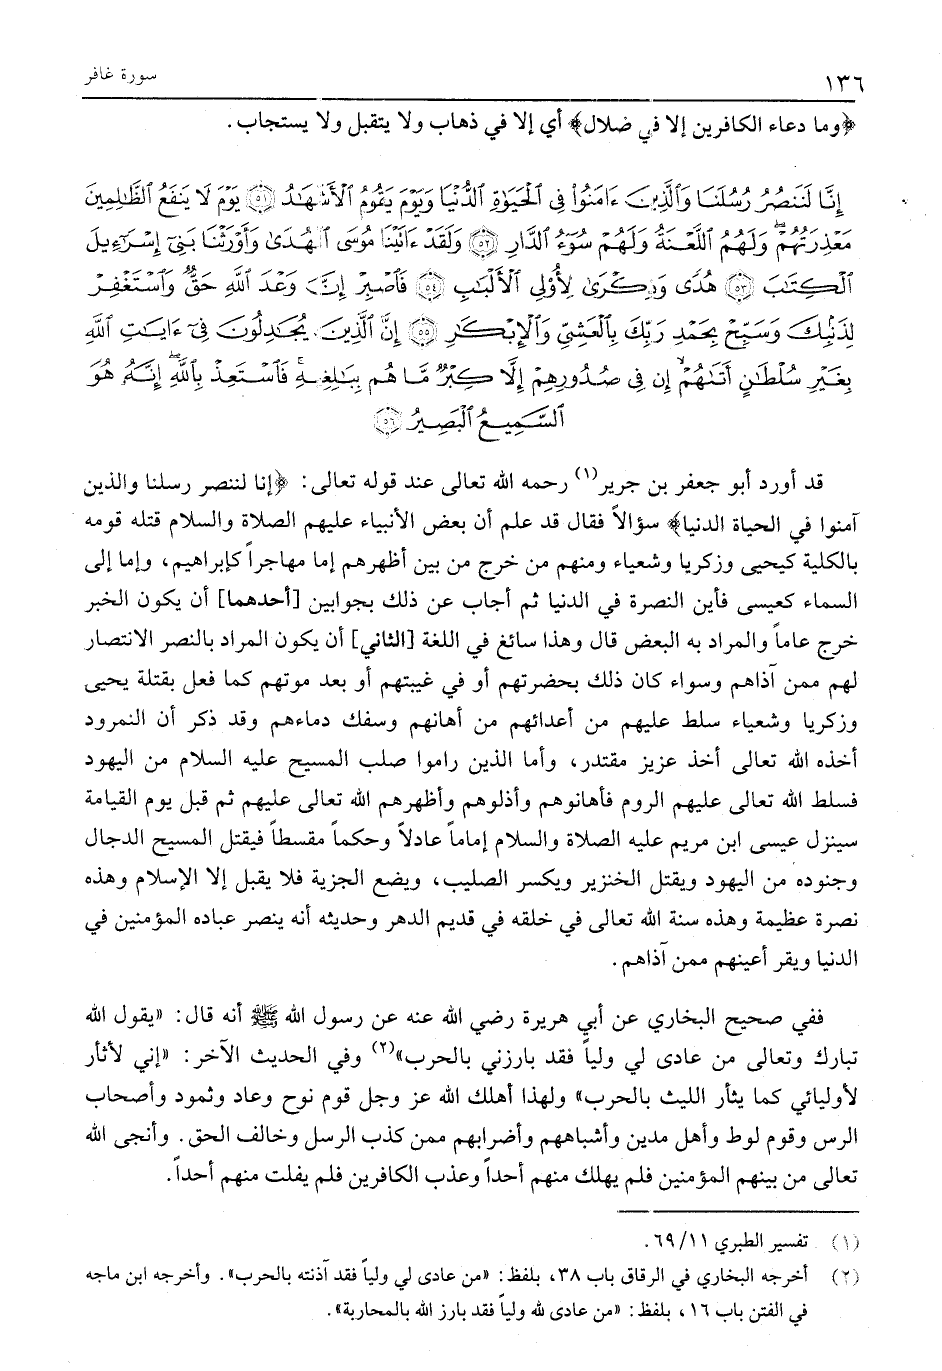 ١٣٦
سورة غافر
﴿وما دعاء الكافرين إلا في ضلال﴾ أي إلا في ذهاب ولا يتقبل ولا يستجاب.
إِنَّا لَنَنصُرُ رُسُلَنَا وَٱلَّذِينَ ءَامَنُوا۟ فِى ٱلْحَيَوٰةِ ٱلدُّنْيَا وَيَوْمَ يَقُومُ ٱلْأَشْهَـٰدُ ﴿٥١﴾ يَوْمَ لَا يَنفَعُ ٱلظَّـٰلِمِينَ
مَعْذِرَتُهُمْ ۖ وَلَهُمُ ٱللَّعْنَةُ وَلَهُمْ سُوٓءُ ٱلدَّارِ ﴿٥٢﴾ وَلَقَدْ ءَاتَيْنَا مُوسَى ٱلْهُدَىٰ وَأَوْرَثْنَا بَنِىٓ إِسْرَٰٓءِيلَ
ٱلْكِتَـٰبَ ﴿٥٣﴾ هُدًى وَذِكْرَىٰ لِأُو۟لِى ٱلْأَلْبَـٰبِ ﴿٥٤﴾ فَٱصْبِرْ إِنَّ وَعْدَ ٱللَّهِ حَقٌّ وَٱسْتَغْفِرْ
لِذَنۢبِكَ وَسَبِّحْ بِحَمْدِ رَبِّكَ بِٱلْعَشِىِّ وَٱلْإِبْكَـٰرِ ﴿٥٥﴾ إِنَّ ٱلَّذِينَ يُجَـٰدِلُونَ فِىٓ ءَايَـٰتِ ٱللَّهِ
بِغَيْرِ سُلْطَـٰنٍ أَتَىٰهُمْ ۙ إِن فِى صُدُورِهِمْ إِلَّا كِبْرٌ مَّا هُم بِبَـٰلِغِيهِ ۚ فَٱسْتَعِذْ بِٱللَّهِ ۖ إِنَّهُۥ هُوَ
ٱلسَّمِيعُ ٱلْبَصِيرُ ﴿٥٦﴾
قد أورد أبو جعفر بن جرير(١) رحمه الله تعالى عند قوله تعالى: ﴿إنا لننصر رسلنا والذين
آمنوا في الحياة الدنيا﴾ سؤالاً فقال قد علم أن بعض الأنبياء عليهم الصلاة والسلام قتله قومه
بالكلية كيحيى وزكريا وشعياء ومنهم من خرج من بين أظهرهم إما مهاجراً كإبراهيم، وإما إلى
السماء كعيسى فأين النصرة في الدنيا ثم أجاب عن ذلك بجوابين [أحدهما] أن يكون الخبر
خرج عاماً والمراد به البعض قال وهذا سائغ في اللغة [الثاني] أن يكون المراد بالنصر الانتصار
لهم ممن آذاهم وسواء كان ذلك بحضرتهم أو في غيبتهم أو بعد موتهم كما فعل بقتلة يحيى
وزكريا وشعياء سلط عليهم من أعدائهم من أهانهم وسفك دماءهم وقد ذكر أن النمرود
أخذه الله تعالى أخذ عزيز مقتدر، وأما الذين راموا صلب المسيح عليه السلام من اليهود
فسلط الله تعالى عليهم الروم فأهانوهم وأذلوهم وأظهرهم الله تعالى عليهم ثم قبل يوم القيامة
سينزل عيسى ابن مريم عليه الصلاة والسلام إماماً عادلاً وحكماً مقسطاً فيقتل المسيح الدجال
وجنوده من اليهود ويقتل الخنزير ويكسر الصليب، ويضع الجزية فلا يقبل إلا الإسلام وهذه
نصرة عظيمة وهذه سنة الله تعالى في خلقه في قديم الدهر وحديثه أنه ينصر عباده المؤمنين في
الدنيا ويقر أعينهم ممن آذاهم.
ففي صحيح البخاري عن أبي هريرة رضي الله عنه عن رسول الله ﷺ أنه قال: «يقول الله
تبارك وتعالى من عادى لي ولياً فقد بارزني بالحرب»(٢) وفي الحديث الآخر: «إني لأثأر
لأوليائي كما يثأر الليث بالحرب» ولهذا أهلك الله عز وجل قوم نوح وعاد وثمود وأصحاب
الرس وقوم لوط وأهل مدين وأشباههم وأضرابهم ممن كذب الرسل وخالف الحق. وأنجى الله
تعالى من بينهم المؤمنين فلم يهلك منهم أحداً وعذب الكافرين فلم يفلت منهم أحداً.
(١) تفسير الطبري ١١/ ٦٩.
(٢) أخرجه البخاري في الرقاق باب ٣٨، بلفظ: «من عادى لي ولياً فقد آذنته بالحرب». وأخرجه ابن ماجه
في الفتن باب ١٦، بلفظ: «من عادى لله ولياً فقد بارز الله بالمحاربة».